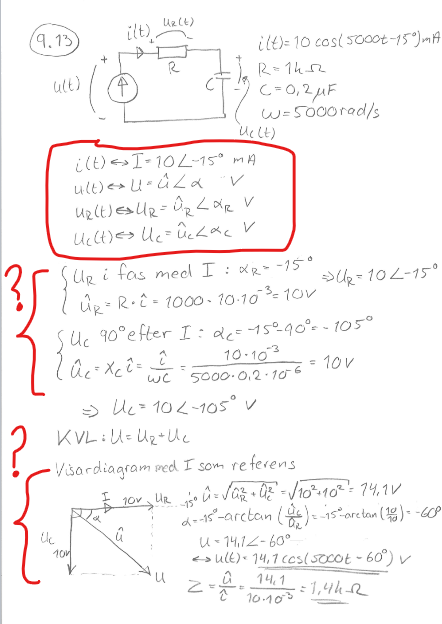 9.13
i(t)
uR(t)
+
R
u(t)
C
uc(t)
i(t)=10 cos(5000t-15°)mA
R=1kΩ
C=0,2μF
ω=5000rad/s
i(t)⇔I=10∠-15° mA
u(t)⇔U=û∠α V
uR(t)⇔UR=ûR∠αR V
uc(t)⇔Uc=ûc∠αc V
?
UR i fas med I: αR=-15°
⇒UR=10∠-15°
ûR=R·î=1000·10·10⁻³=10V
Uc 90° efter I: αc=-15°-90°=-105°
ûc=Xcî=î/ωC=10·10⁻³/5000·0,2·10⁻⁶=10V
⇒ Uc=10∠-105° V
?
KVL: U=UR+Uc
Visardiagram med I som referens
I 10V UR
α
Uc
10V
û
U
-15°
û=√ûR²+ûc²=√10²+10²=14,1V
α=-15°-arctan(ûc/ûR)=-15°-arctan(10/10)=-60°
U=14,1∠-60°
⇔u(t)=14,1cos(5000t-60°) V
Z=û/î=14,1/10·10⁻³=1,4kΩ